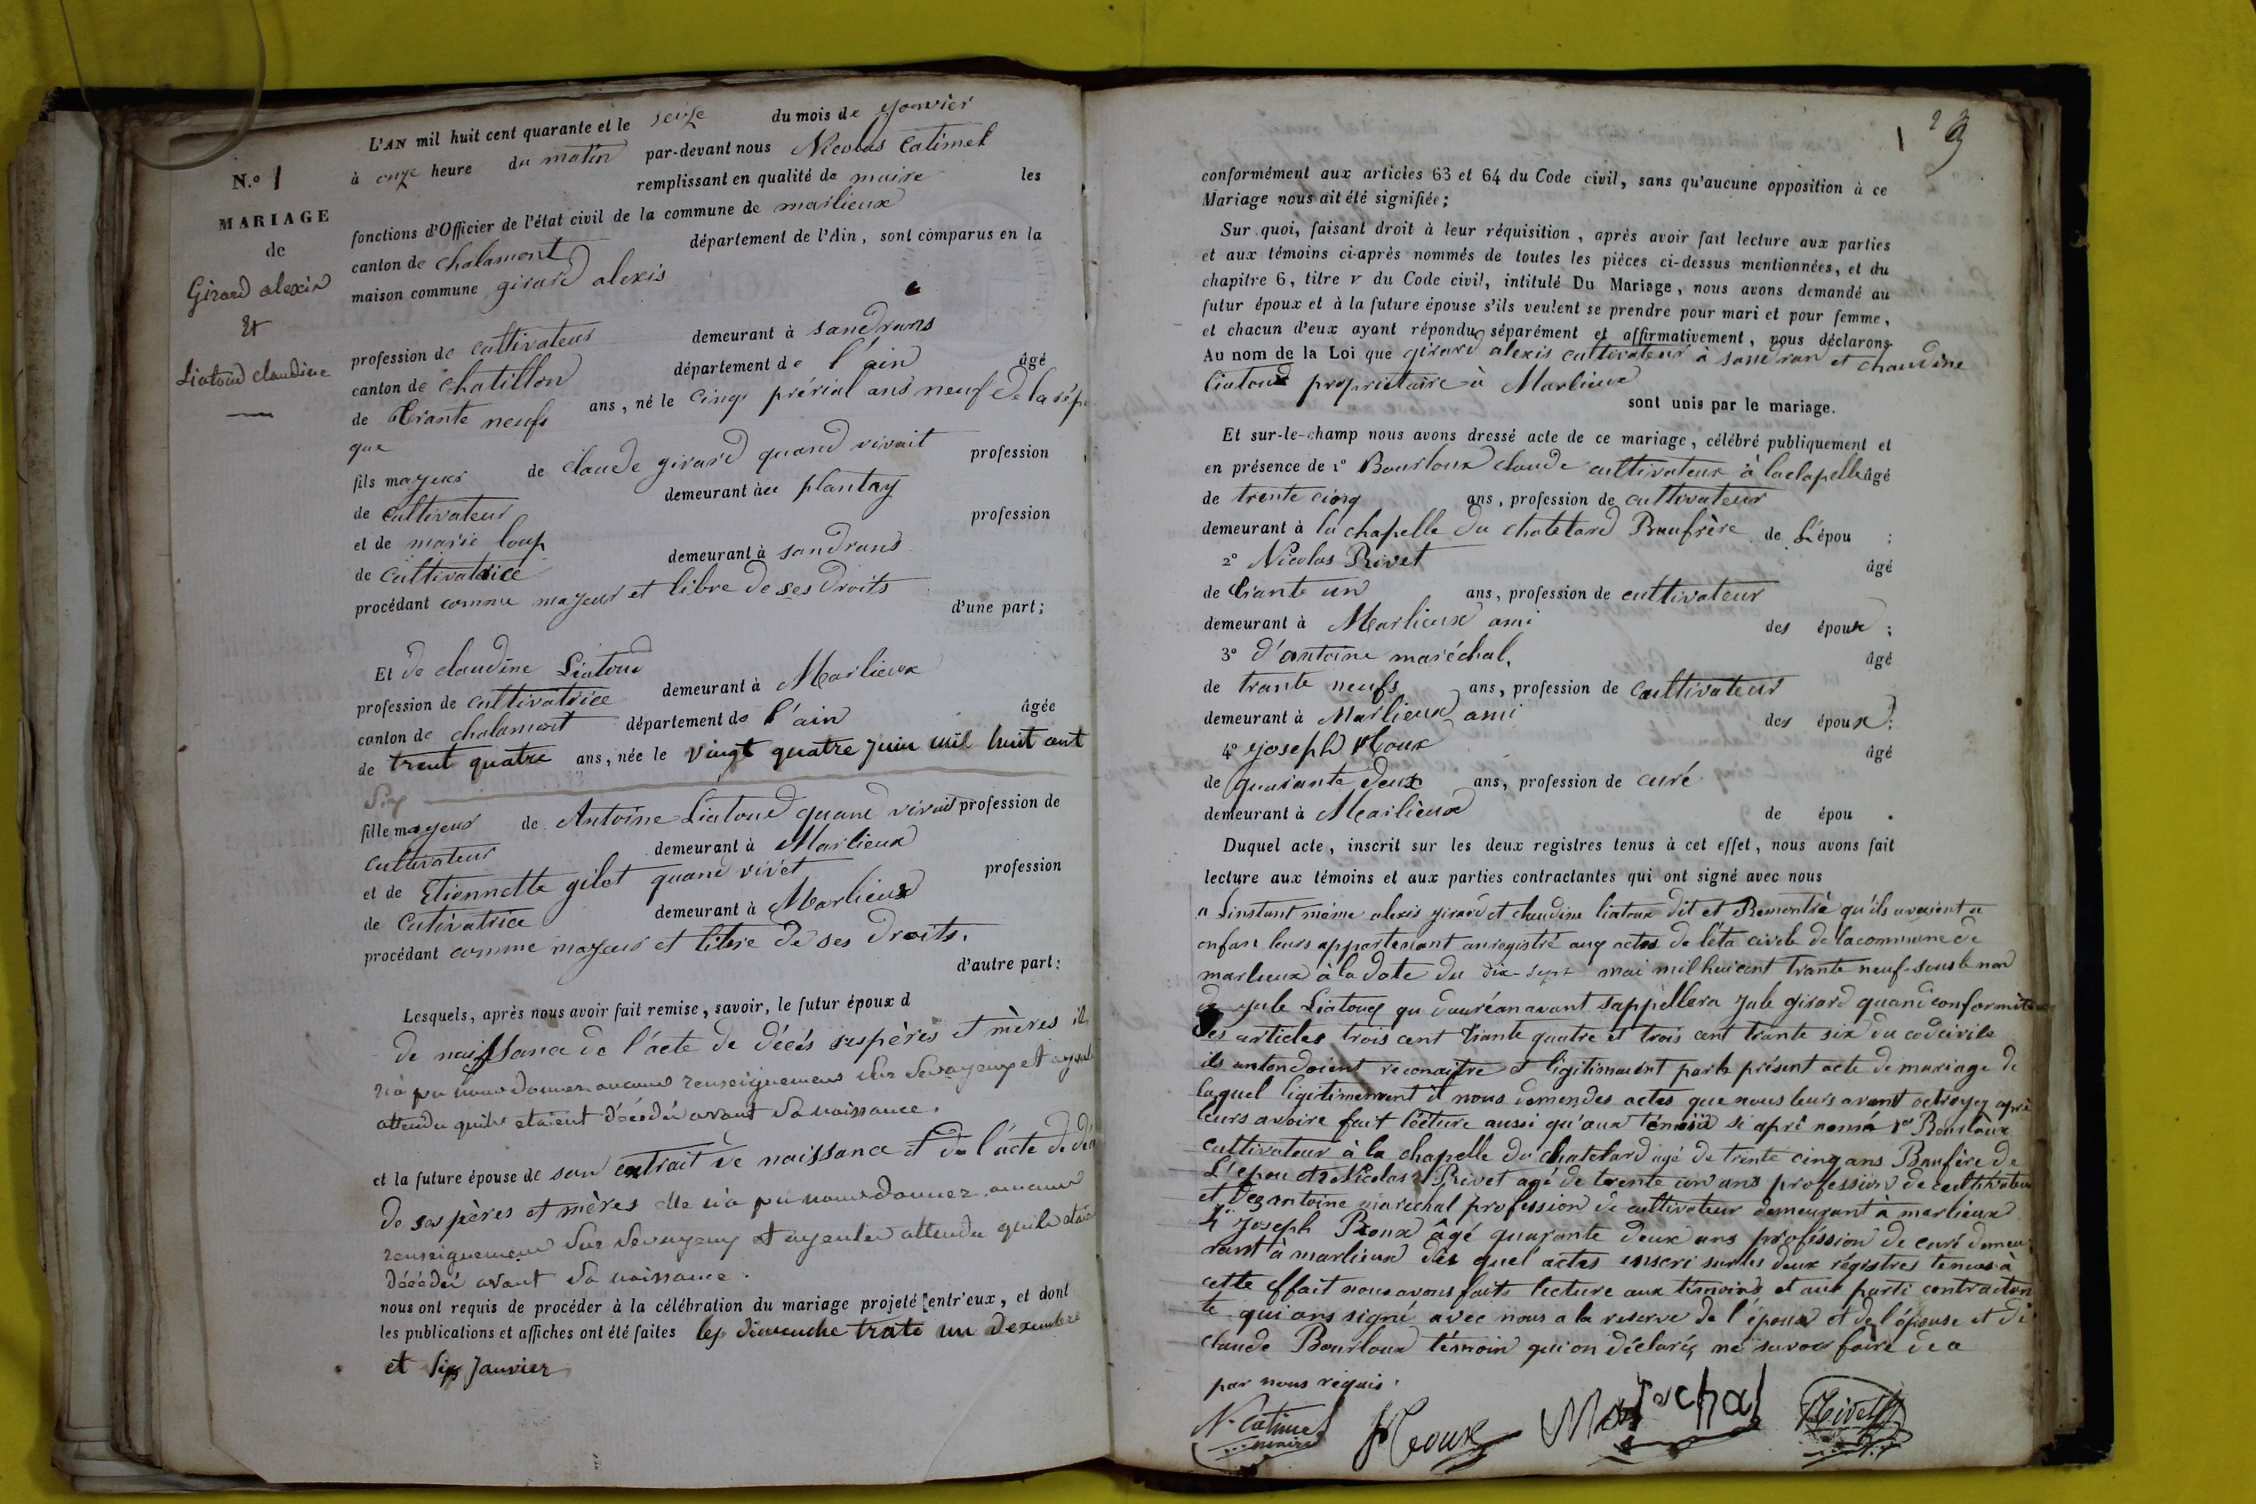 N.º 1
MARIAGE
de
Girard alexis
Et
Liatoud claudine
L'AN mil huit cent quarante et le seize du mois de janvier
à onze heure du matin par-devant nous Nicolas Catimel
remplissant en qualité de maire les
fonctions d'Officier de l'état civil de la commune de marlieux
canton de chalamont département de l'Ain, sont comparus en la
maison commune girard alexis
profession de cultivateur demeurant à sandrans
canton de chatillon département de l'ain âgé
de trante neufs ans, né le cinq prérial ans neuf de la répu
que
fils mayeur de claude girard quand vivait profession
de cultivateur demeurant à plantay
et de marie loup profession
de cultivatrice demeurant à sandrans
procédant comme mayeur et libre de ses droits
d'une part;
Et de claudine Liatoud
profession de cultivatrice demeurant à Marlieux
canton de chalamont département de l'ain âgée
de trent quatre ans, née le vingt quatre juin mil huit cent
Six
fille mayeur de Antoine Liatoud quand vivait profession de
cultivateur demeurant à Marlieux
et de Etiennette gilet quand vivét profession
de cutivatrice demeurant à Marlieux
procédant comme mayeur et libre de ses droits.
d'autre part:
Lesquels, après nous avoir fait remise, savoir, le futur époux d
de naissance de l'acte de décés ses pères et mères il
n'a pu nous donner aucuns renseignemens sur ses ayeux et
attendu quils etaient décédés avant sa naissance.
et la future épouse de son extrait de naissance et de l'acte de dé
de ses pères et mères elle n'a pu nous donner aucuns
renseignemens sur ses ayeux et ayeules attendu quils etaie
décédés avant sa naissance.
nous ont requis de procéder à la célébration du mariage projeté entr'eux, et dont
les publications et affiches ont été faites les dimenche trate un dexembre
et Six Janvier
1 29
conformément aux articles 63 et 64 du Code civil, sans qu'aucune opposition à ce
Mariage nous ait été signifiée;
Sur quoi, faisant droit à leur réquisition, après avoir fait lecture aux parties
et aux témoins ci-après nommés de toutes les pièces ci-dessus mentionnées, et du
chapitre 6, titre V du Code civil, intitulé Du Mariage, nous avons demandé au
futur époux et à la future épouse s'ils veulent se prendre pour mari et pour femme,
et chacun d'eux ayant répondu séparément et affirmativement, nous déclarons
Au nom de la Loi que girard alexis cultivateur à sandran et chaudine
liatoux propriétaire à Marlieux
sont unis par le mariage.
Et sur-le-champ nous avons dressé acte de ce mariage, célébré publiquement et
en présence de 1º Bourloux claude cultivateur à lachapelle âgé
de trente cinq ans, profession de cultivateur
demeurant à la chapelle du chatelard Baufrère de L'épou ;
2º Nicolas Rivet âgé
de trante un ans, profession de cultivateur
demeurant à Marlieux ami des époux ;
3º d'antoine maréchal, âgé
de trante neufs ans, profession de cultivateur
demeurant à Marlieux ami des époux ;
4º joseph Roux âgé
de quarante deux ans, profession de curé
demeurant à Marlieux de épou .
Duquel acte, inscrit sur les deux registres tenus à cet effet, nous avons fait
lecture aux témoins et aux parties contractantes qui ont signé avec nous
a Linstant méme alexis girard et claudine liatoux dit et Remontré qu'ils avaient u
enfan leurs appartenant anregistré aux actes de l'éta civile de lacommune de
marlieux à la date du dix-sept mai mil huicent trante neuf sous le non
de jule Liatoux qu dauréanavant sappellera jule girard quand conformité
des articles trois cent trante quatre et trois cent trante six du codcivile
ils antendoient reconaitre et ligitimaient par le présent acte de mariage de
laquel ligitimement il nous demendes actes que nous leurs avont octroyez aprè
leurs avoire fait lécture aussi qu'aux témoin si aprè nomé 1º Bourloux
cultivateur à la chapelle du chatelard agé de trente cinq ans Baufère de
L'epou et 2º Nicolas Rivet agé de trente un ans profession de cultivateur
et 3º antoine maréchal profession de cultivateur demeurant à marlieux
4º joseph Roux âgé quarante deux ans proféssion de curé demeu
rant à marlieux des quel actes enscri surles deux régistres tenus à
cette éffait nous avons faits lecture aux témoins et aux parti contractan
te qui ons signé avec nous a la reserve de l'époux et de l'épouse et de
claude Bourloux témoin qui on déclaré, ne savoir faire de a
par nous requis.
N. Catimel Roux Marechal Rivet
maire